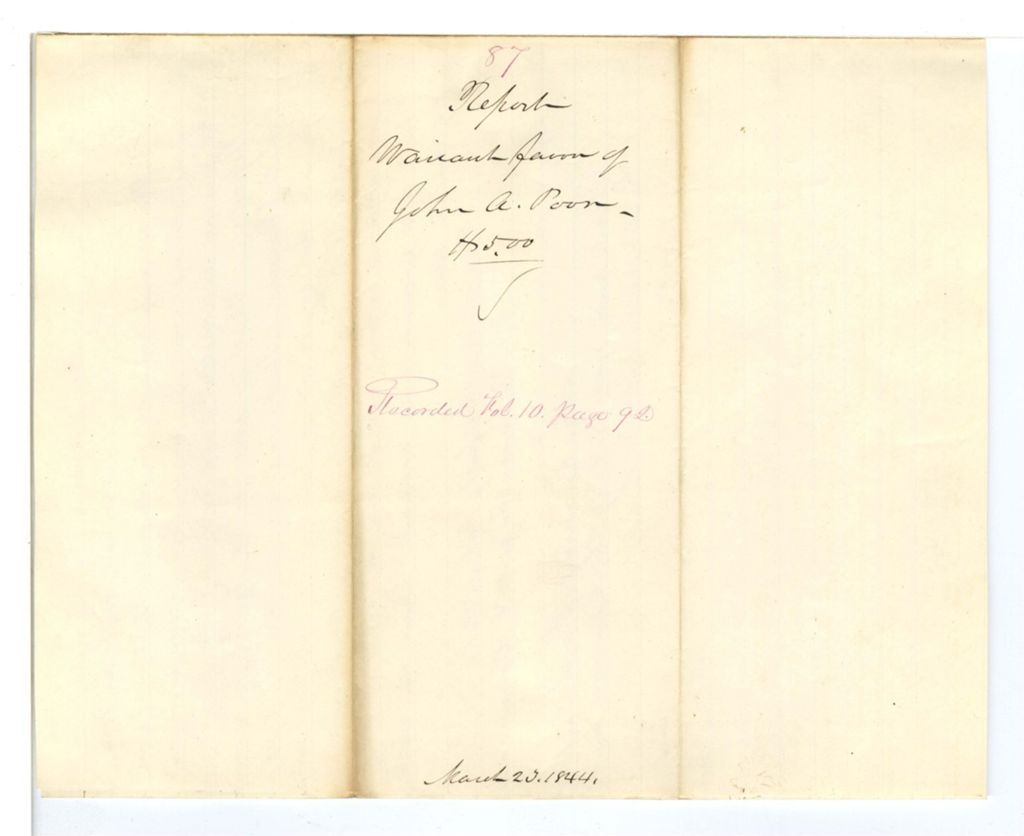 87
Report
Warrant favor of
John A. Poor -
$5.00
Recorded Vol. 10. Page 92
March 23. 1844.